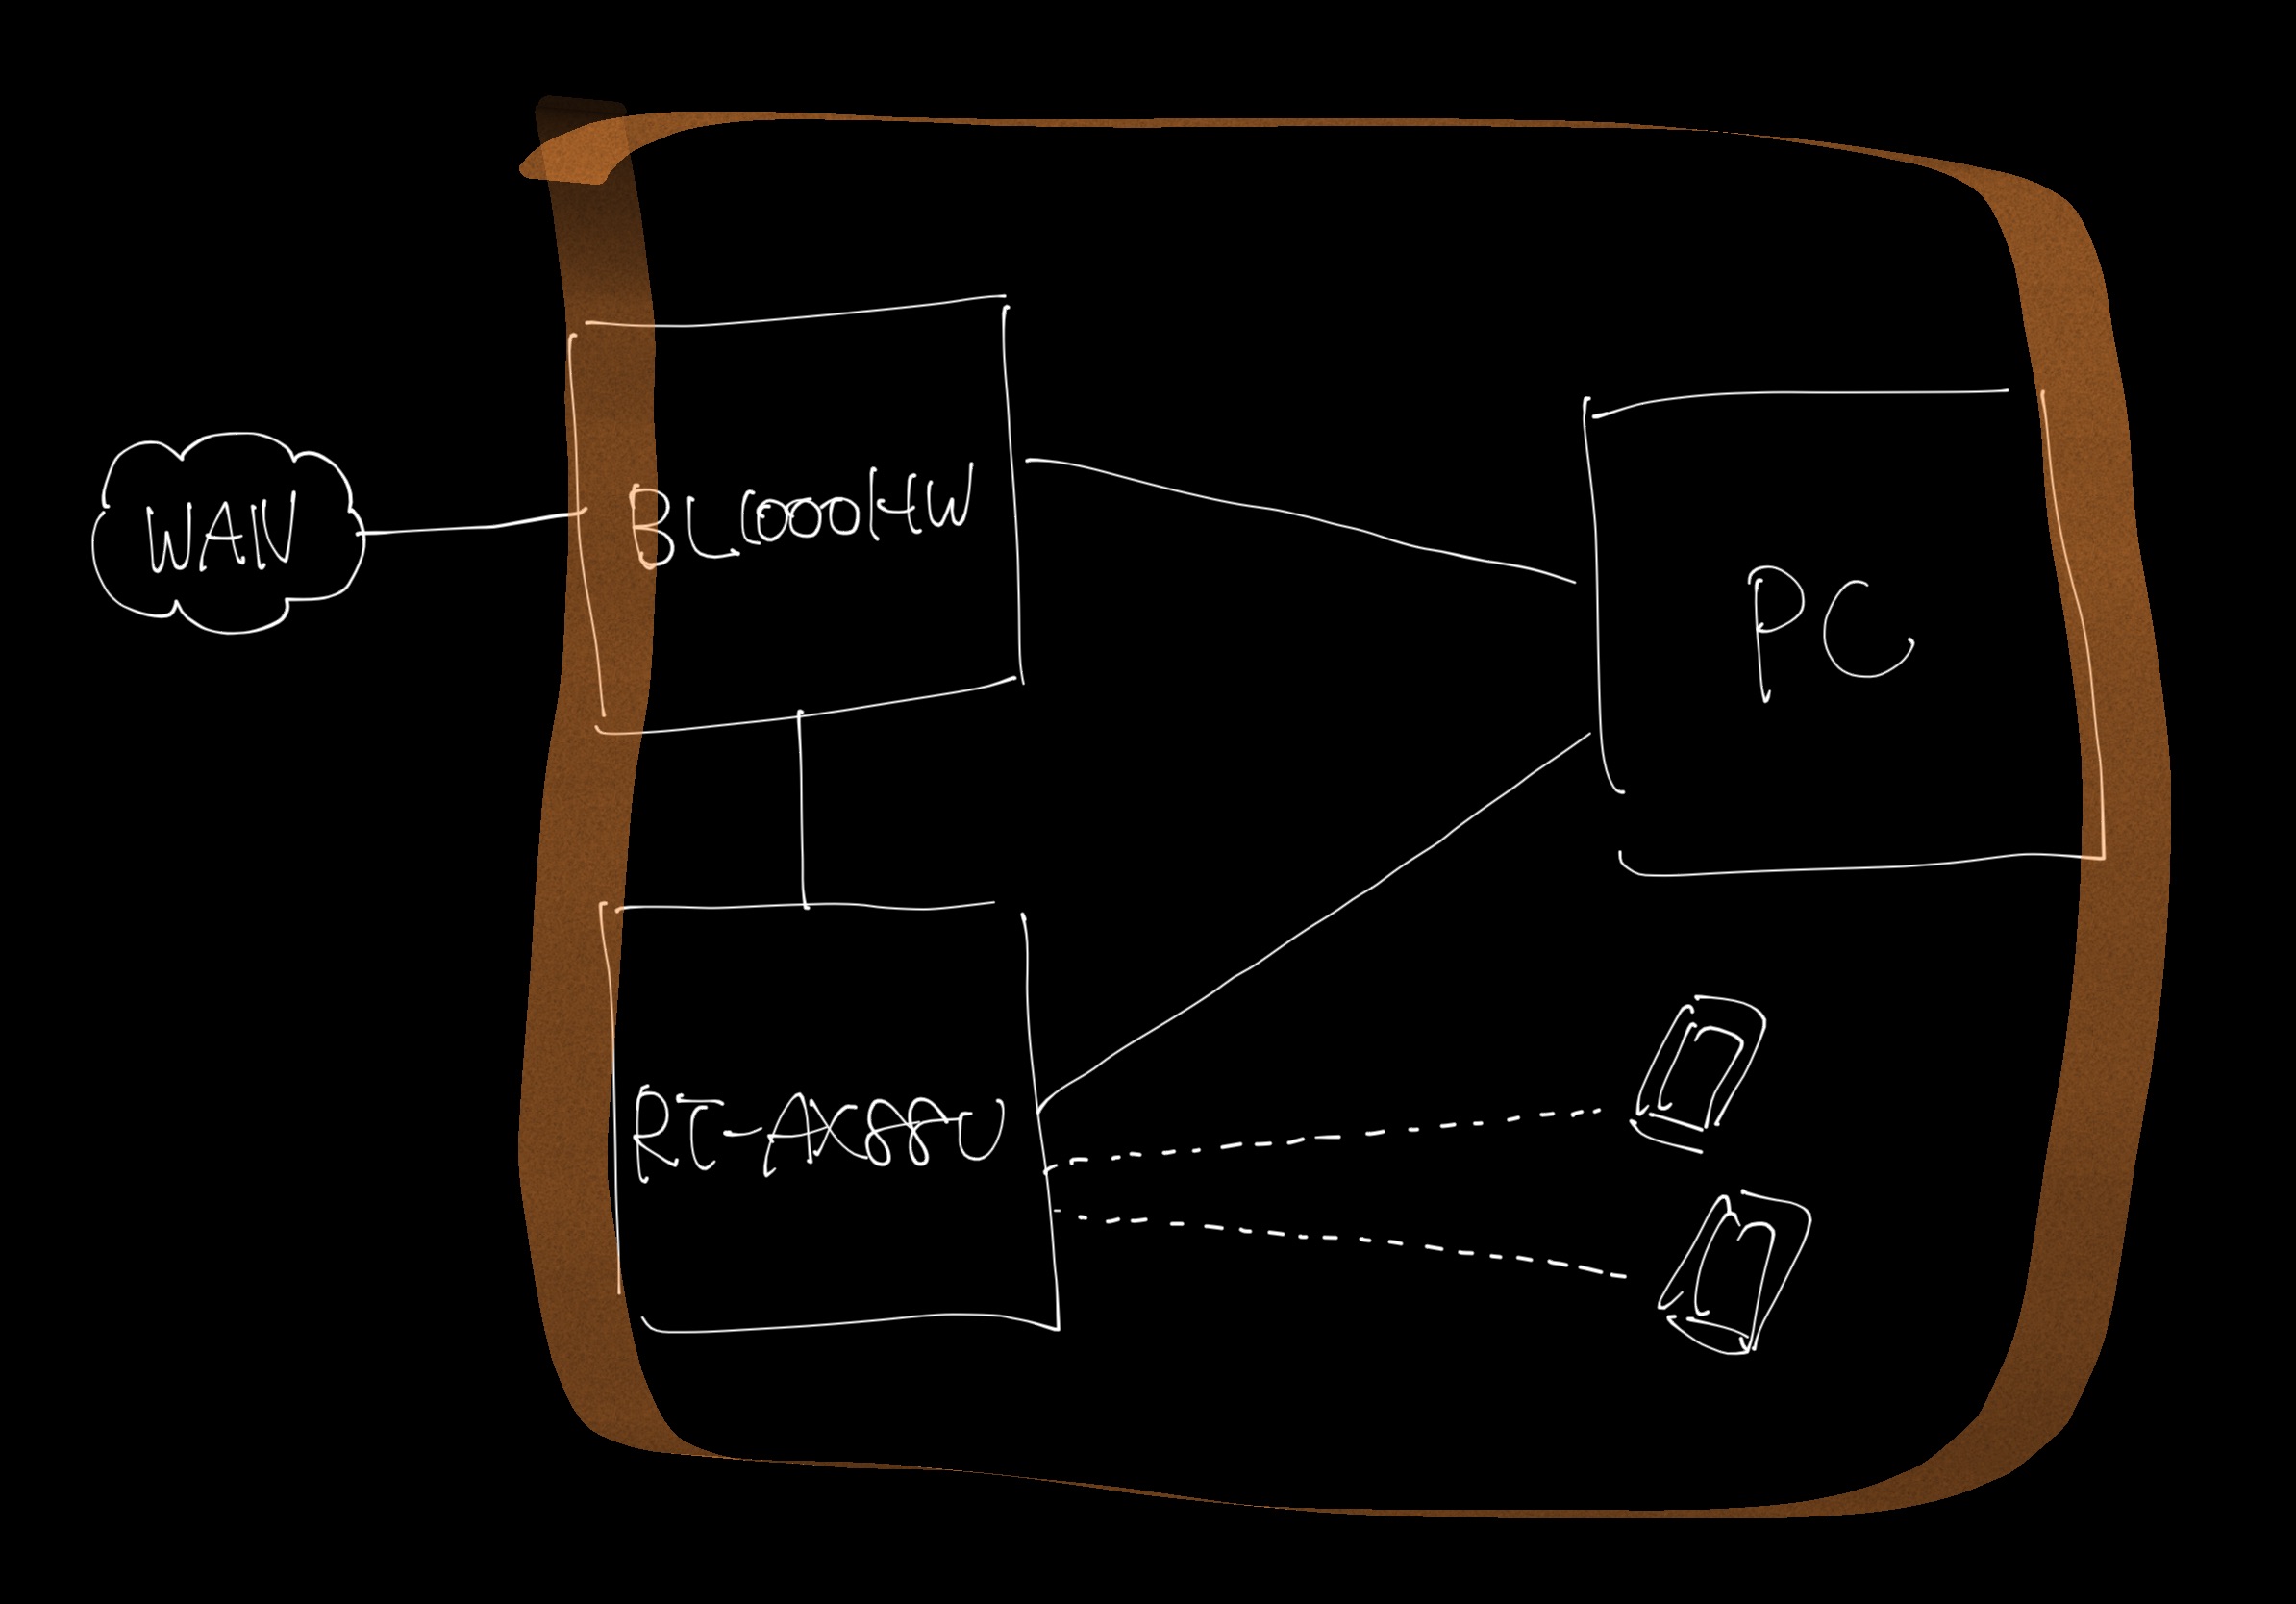 WAN
BL1000HW
PC
RT-AX88U